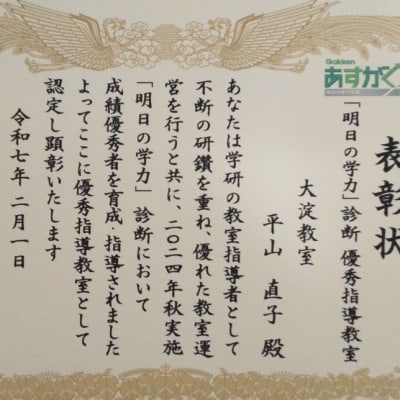 Gakken
あすがく
表彰状
「明日の学力」診断 優秀指導教室
大淀教室
平山 直子 殿
あなたは学研の教室指導者として
不断の研鑽を重ね、優れた教室運
営を行うと共に、二〇二四年秋実施
「明日の学力」診断において
成績優秀者を育成・指導されました
よってここに優秀指導教室として
認定し顕彰いたします
令和七年 二月一日